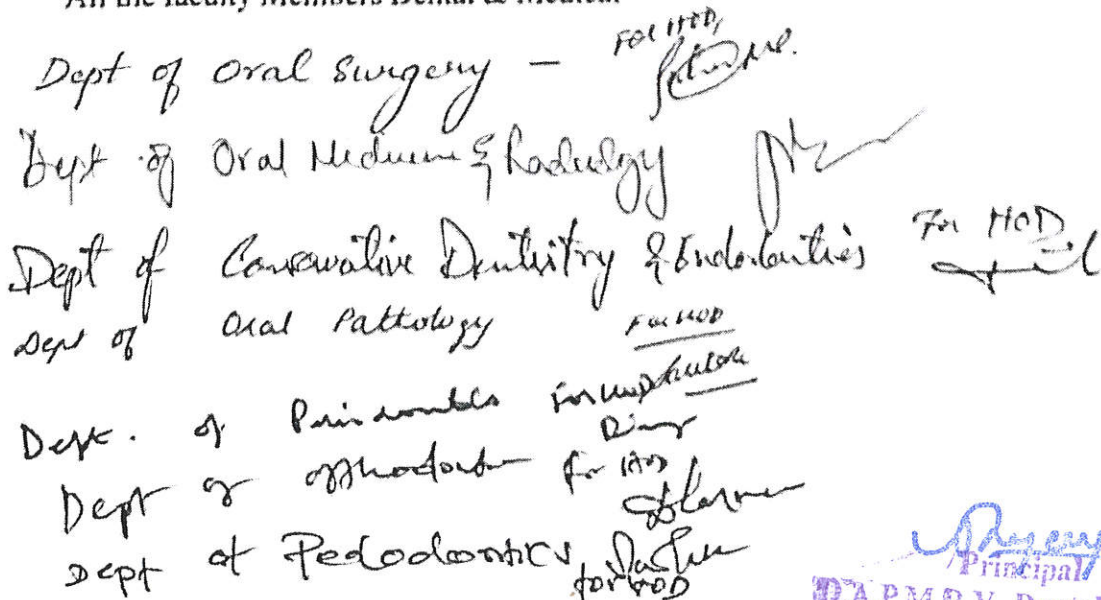 All the faculty Members Dental & Medical
Dept of Oral Surgery – For HOD,
Dept of Oral Medicine & Radiology
Dept of Conservative Dentistry & Endodontics For HOD
Dept of Oral Pathology For HOD
Dept. of Periodontics For HOD
Dept of Orthodontics for HOD
Dept of Pedodontics for HOD
Principal
D.A.P.M.R.V. Dental